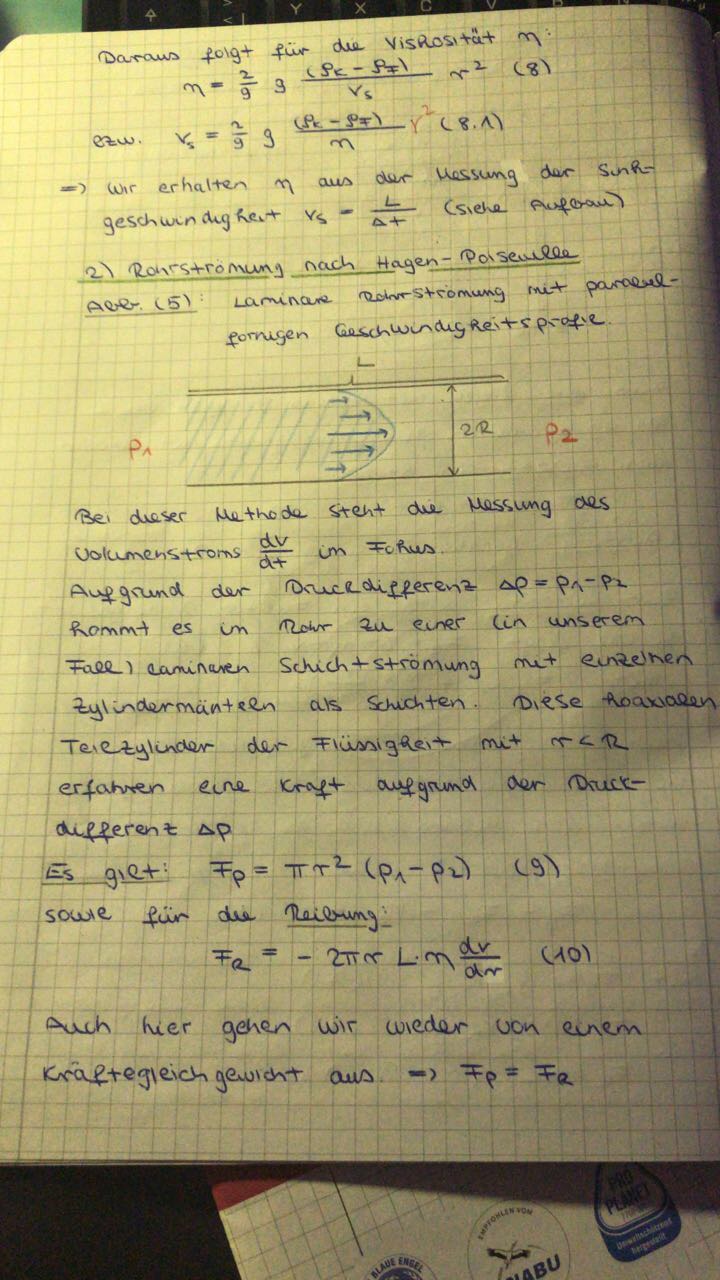 Daraus folgt für die Viskosität η:
η = 2/9 g (ρK − ρF)/vs r² (8)
bzw. vs = 2/9 g (ρK − ρF)/η r² (8.1)
=> Wir erhalten η aus der Messung der Sink-
geschwindigkeit vs = L/Δt (siehe Aufbau)
2) Rohrströmung nach Hagen-Poiseuille
Abb. (5): Laminare Rohrströmung mit parabel-
förmigen Geschwindigkeitsprofil.
L
p1 2R p2
Bei dieser Methode steht die Messung des
Volumenstroms dV/dt im Fokus.
Aufgrund der Druckdifferenz Δp = p1−p2
kommt es im Rohr zu einer (in unserem
Fall) laminaren Schichtströmung mit einzelnen
Zylindermänteln als Schichten. Diese koaxialen
Teilzylinder der Flüssigkeit mit r < R
erfahren eine Kraft aufgrund der Druck-
differenz Δp
Es gilt: Fp = πr² (p1−p2) (9)
sowie für die Reibung:
FR = − 2πr L·η dv/dr (10)
Auch hier gehen wir wieder von einem
Kräftegleichgewicht aus. => Fp = FR
PRO
PLANET
Umweltschützend
hergestellt
EMPFOHLEN VOM
NABU
BLAUE ENGEL